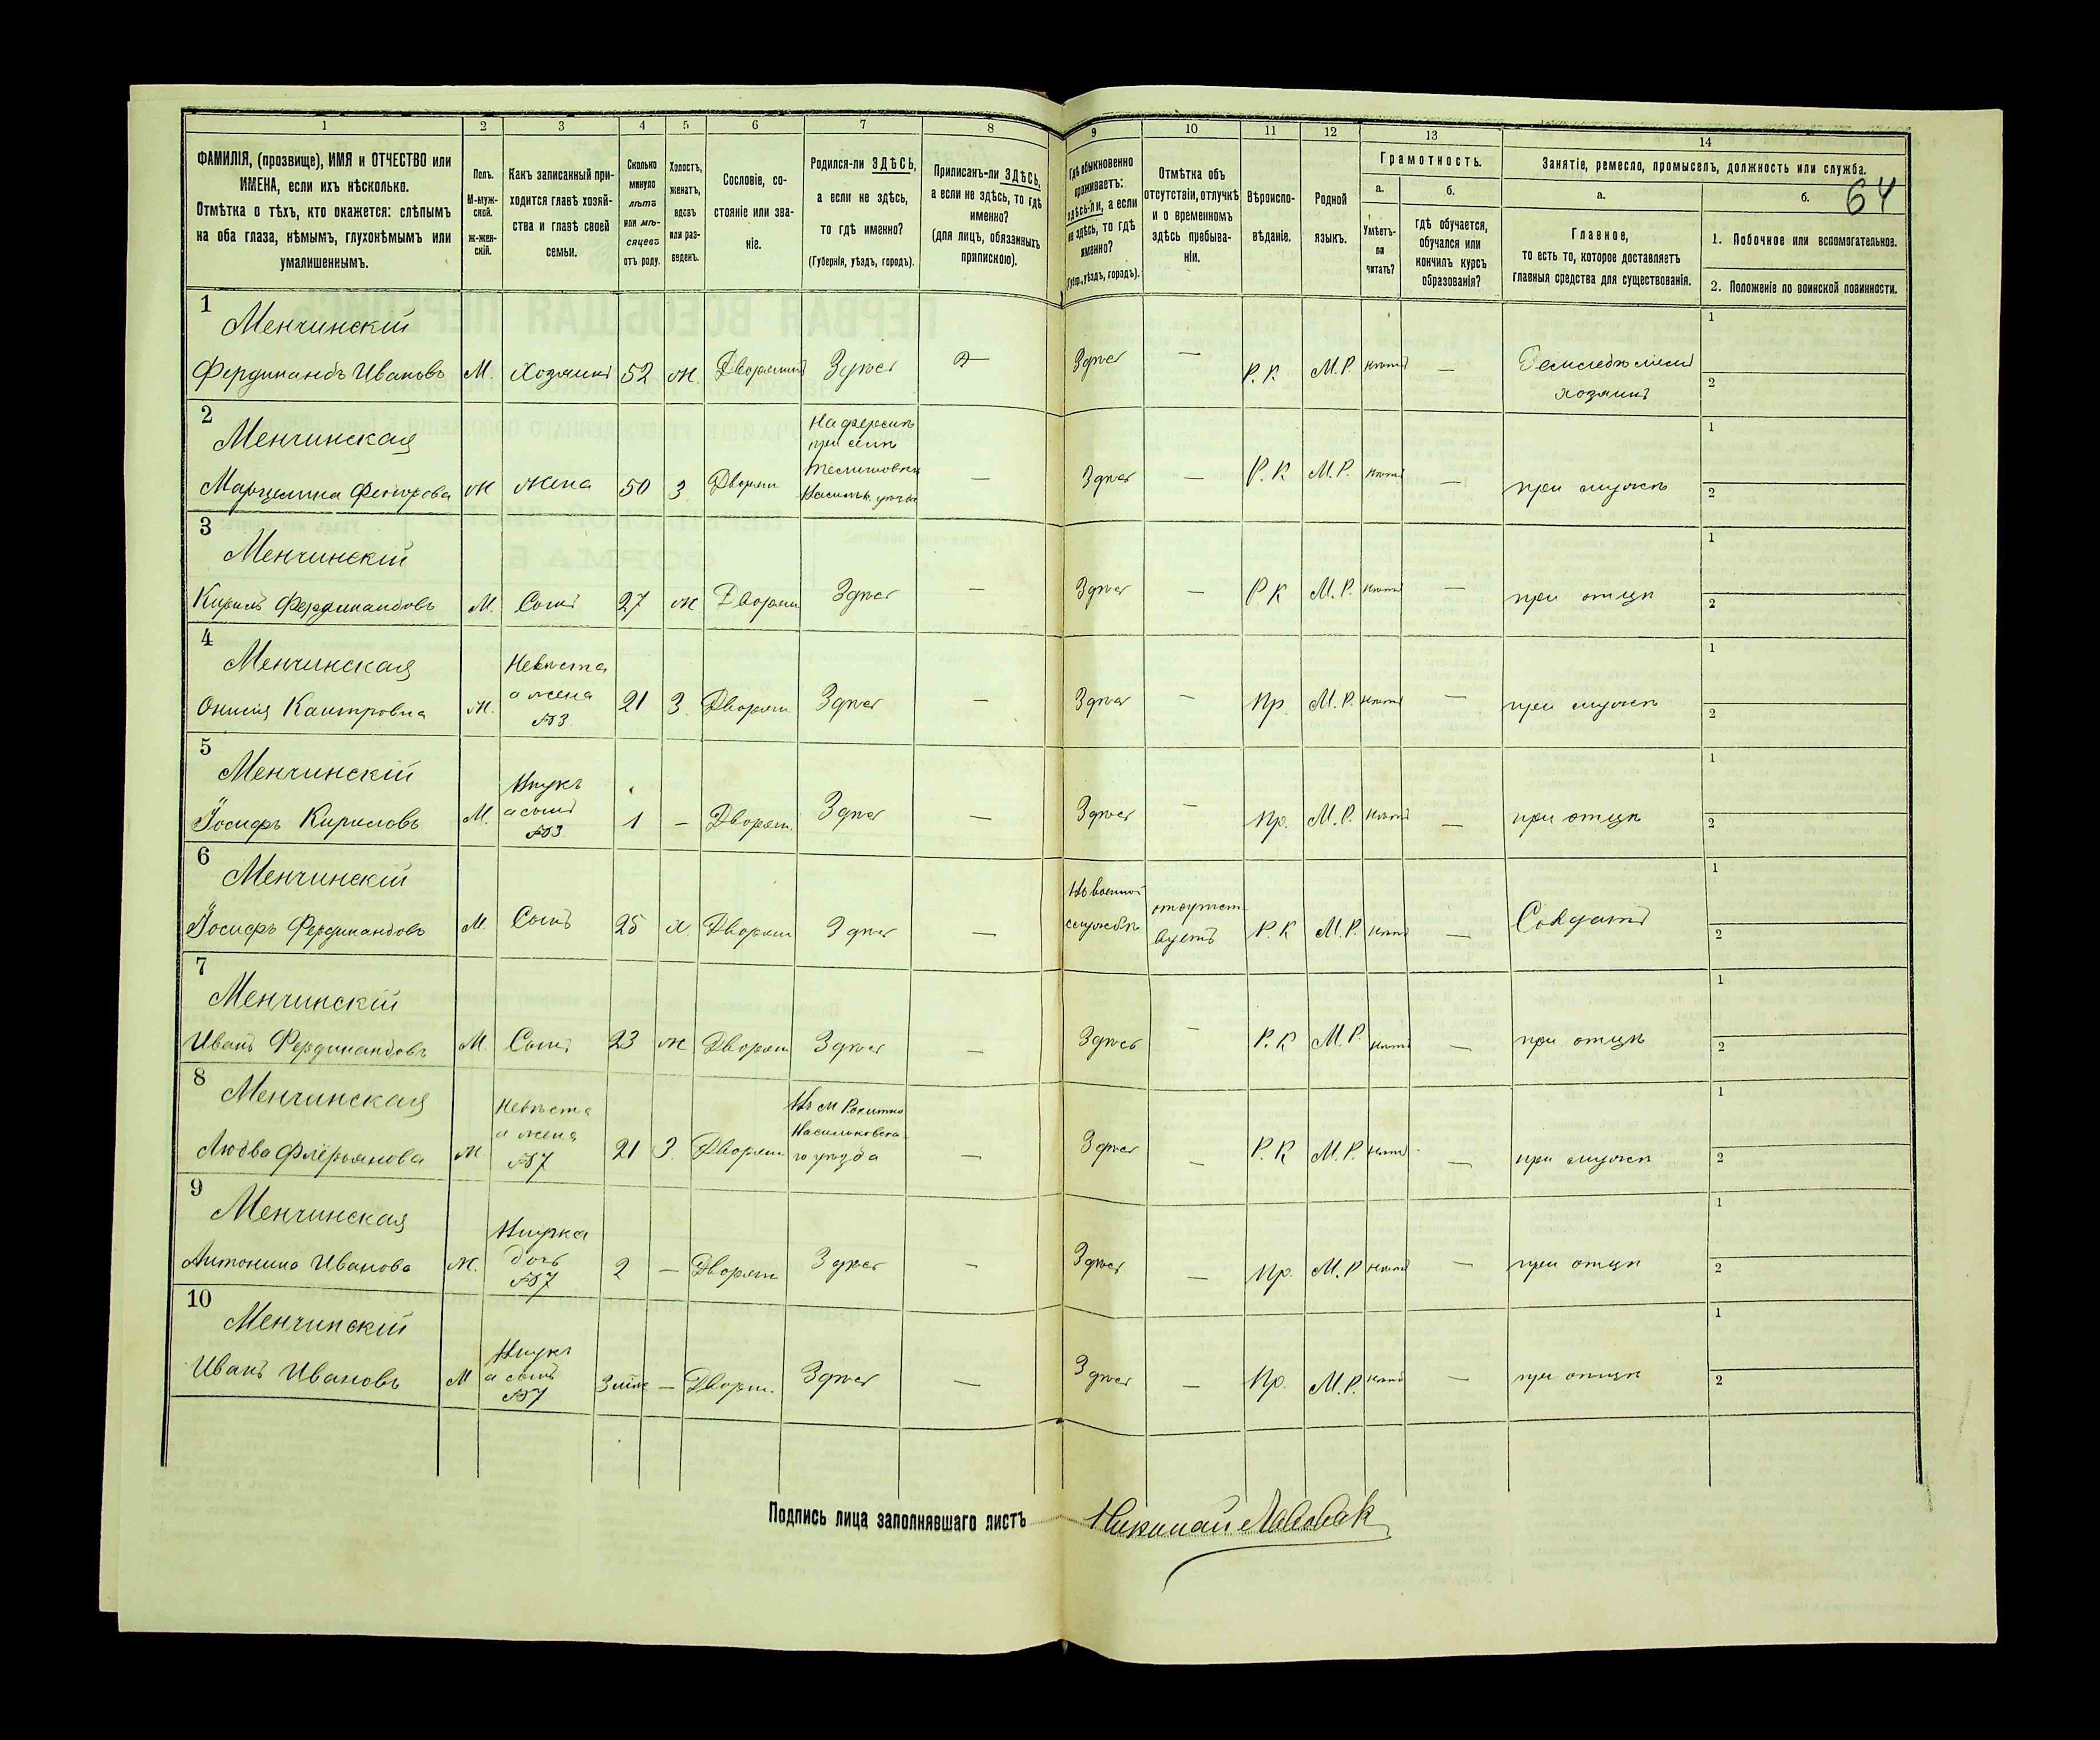 1 2 3 4 5 6 7 8 9 10 11 12 13 14
ФАМИЛІЯ, (прозвище), ИМЯ и ОТЧЕСТВО или
ИМЕНА, если ихъ нѣсколько.
Отмѣтка о тѣхъ, кто окажется: слѣпымъ
на оба глаза, нѣмымъ, глухонѣмымъ или
умалишеннымъ.
Полъ.
М-муж-
ской.
Ж-жен-
скій.
Какъ записанный при-
ходится главѣ хозяй-
ства и главѣ своей
семьи.
Сколько
минуло
лѣтъ
или мѣ-
сяцевъ
отъ роду.
Холостъ,
женатъ,
вдовъ
или раз-
веденъ.
Сословіе, со-
стояніе или зва-
ніе.
Родился-ли ЗДѢСЬ,
а если не здѣсь,
то гдѣ именно?
(Губернія, уѣздъ, городъ).
Приписанъ-ли ЗДѢСЬ,
а если не здѣсь, то гдѣ
именно?
(для лицъ, обязанныхъ
припискою).
Гдѣ обыкновенно
проживаетъ:
здѣсь-ли, а если
не здѣсь, то гдѣ
именно?
(Губер., уѣздъ, городъ).
Отмѣтка объ
отсутствіи, отлучкѣ
и о временномъ
здѣсь пребыва-
ніи.
Вѣроиспо-
вѣданіе.
Родной
языкъ.
Грамотность.
а.
Умѣетъ-
ли
читать?
б.
гдѣ обучается,
обучался или
кончилъ курсъ
образованія?
Занятіе, ремесло, промыселъ, должность или служба.
64
а.
Главное,
то есть то, которое доставляетъ
главныя средства для существованія.
б.
1. Побочное или вспомогательное.
2. Положеніе по воинской повинности.
1
Менчинскій
Фердинандъ Ивановъ М. Хозяинъ 52 Ж. Дворянинъ Здѣсь — Здѣсь — Р. К. М. Р. нѣтъ —
хозяинъ
1
2
2
Менчинская
Марцелина М Жена 50 З. Дворян
при селѣ
— Здѣсь — Р. К М. Р. нѣтъ — при мужѣ
1
2
3
Менчинскій
Кирилъ Фердинандовъ М. Сынъ 27 Ж Дворян Здѣсь — Здѣсь — Р К М. Р. нѣтъ — при отцѣ
1
2
4
Менчинская
Каитровна Ж.
Невѣста
а жена
№3
21 З. Дворян Здѣсь — Здѣсь — Пр. М. Р. нѣтъ — при мужѣ
1
2
5
Менчинскій
Іосифъ Кириловъ М.
Внукъ
а сынъ
№3
1 — Дворян. Здѣсь — Здѣсь — Пр. М. Р. нѣтъ — при отцѣ
1
2
6
Менчинскій
Іосифъ Фердинандовъ М. Сынъ 25 Х. Дворян Здѣсь —
На военной
службѣ
отсутст
вуетъ
Р. К М. Р. нѣтъ — Солдатъ
1
2
7
Менчинскій
Иванъ Фердинандовъ М. Сынъ 23 Ж Дворян Здѣсь — Здѣсь — Р. К М. Р. нѣтъ — при отцѣ
1
2
8
Менчинская
Любва Флёрьянова Ж
Невѣста
а жена
№7
21 З. Дворян
Въ м Рокитно
Васильковска
го уѣзда
— Здѣсь — Р. К М. Р. нѣтъ — при мужѣ
1
2
9
Менчинская
Антонина Иванова Ж.
Внучка
дочь
№7
2 — Дворян Здѣсь — Здѣсь — Пр. М. Р нѣтъ — при отцѣ
1
2
10
Менчинскій
Иванъ Ивановъ М
Внукъ
а сынъ
№7
— Дворян. Здѣсь — Здѣсь — Пр. М. Р. нѣтъ — при отцѣ
1
2
Подпись лица заполнявшаго листъ